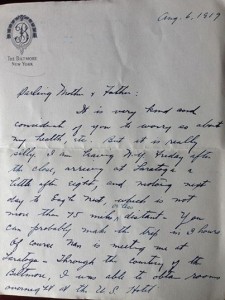 Aug. 6, 1919
B
THE BILTMORE
NEW YORK
Darling Mother & Father:
It is very kind and
considerate of you to worry so about
my health, etc. But it is really
silly. I am leaving N.Y. Friday after
the close, arriving at Saratoga a
little after eight, and motoring next
day to Eagle Nest, which is not
more than 75 miles distant. You
can probably make the trip in 3 hours
Of course Nan is meeting me at
Saratoga. Through the courtesy of the
Biltmore, I was able to obtain rooms
overnight at the U.S. Hotel